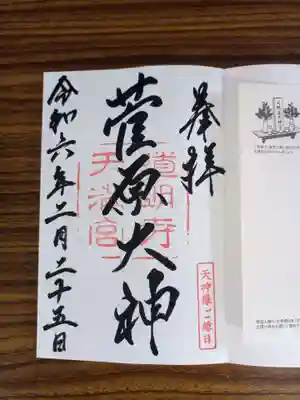 奉拝
菅原大神
道明寺
天満宮
天神様ご縁日
令和六年二月二十五日